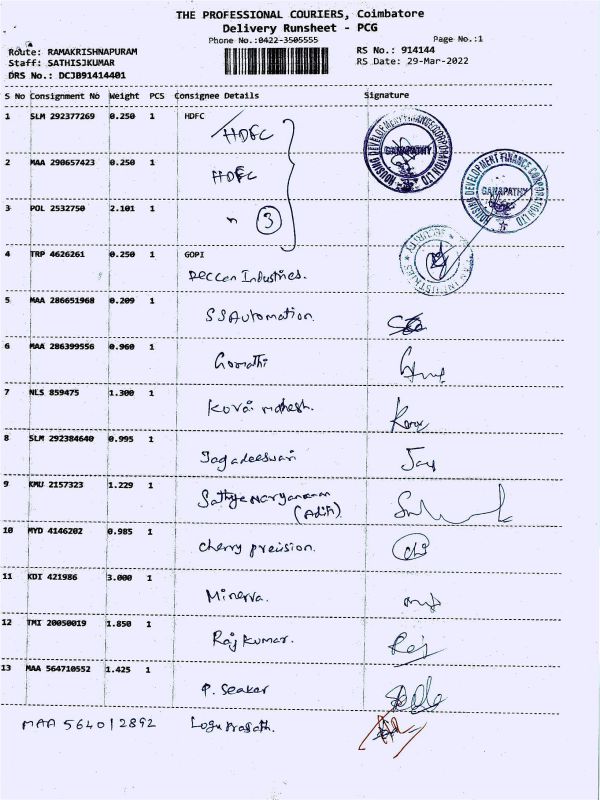 THE PROFESSIONAL COURIERS, Coimbatore
Delivery Runsheet - PCG
Phone No.:0422-3505555 Page No.:1
Route: RAMAKRISHNAPURAM RS No.: 914144
Staff: SATHISJKUMAR RS Date: 29-Mar-2022
DRS No.: DCJB91414401
S No Consignment No Weight PCS Consignee Details Signature
1 SLM 292377269 0.250 1 HDFC
HDFC
HOUSING DEVELOPMENT FINANCE CORPORATION LTD
GANAPATHY
2 MAA 290657423 0.250 1
HDFC
HOUSING DEVELOPMENT FINANCE CORPORATION LTD
GANAPATHY
3 POL 2532750 2.101 1
" 3
4 TRP 4626261 0.250 1 GOPI
Deccan Industries.
INDUSTRIES * SECURITY *
5 MAA 286651968 0.209 1
SSAutomation.
6 MAA 286399556 0.960 1
Gomathi
7 NLS 859475 1.300 1
Kovai mahesh.
8 SLM 292384640 0.995 1
Jagadeeswari
9 KMU 2157323 1.229 1
(Aditi)
10 MYD 4146202 0.985 1
cherry precision.
11 KDI 421986 3.000 1
Minerva.
12 TMI 20050019 1.850 1
Raj Kumar. Raj
13 MAA 564710552 1.425 1
P. Seakar
MAA 564012892 Logu Prasath.